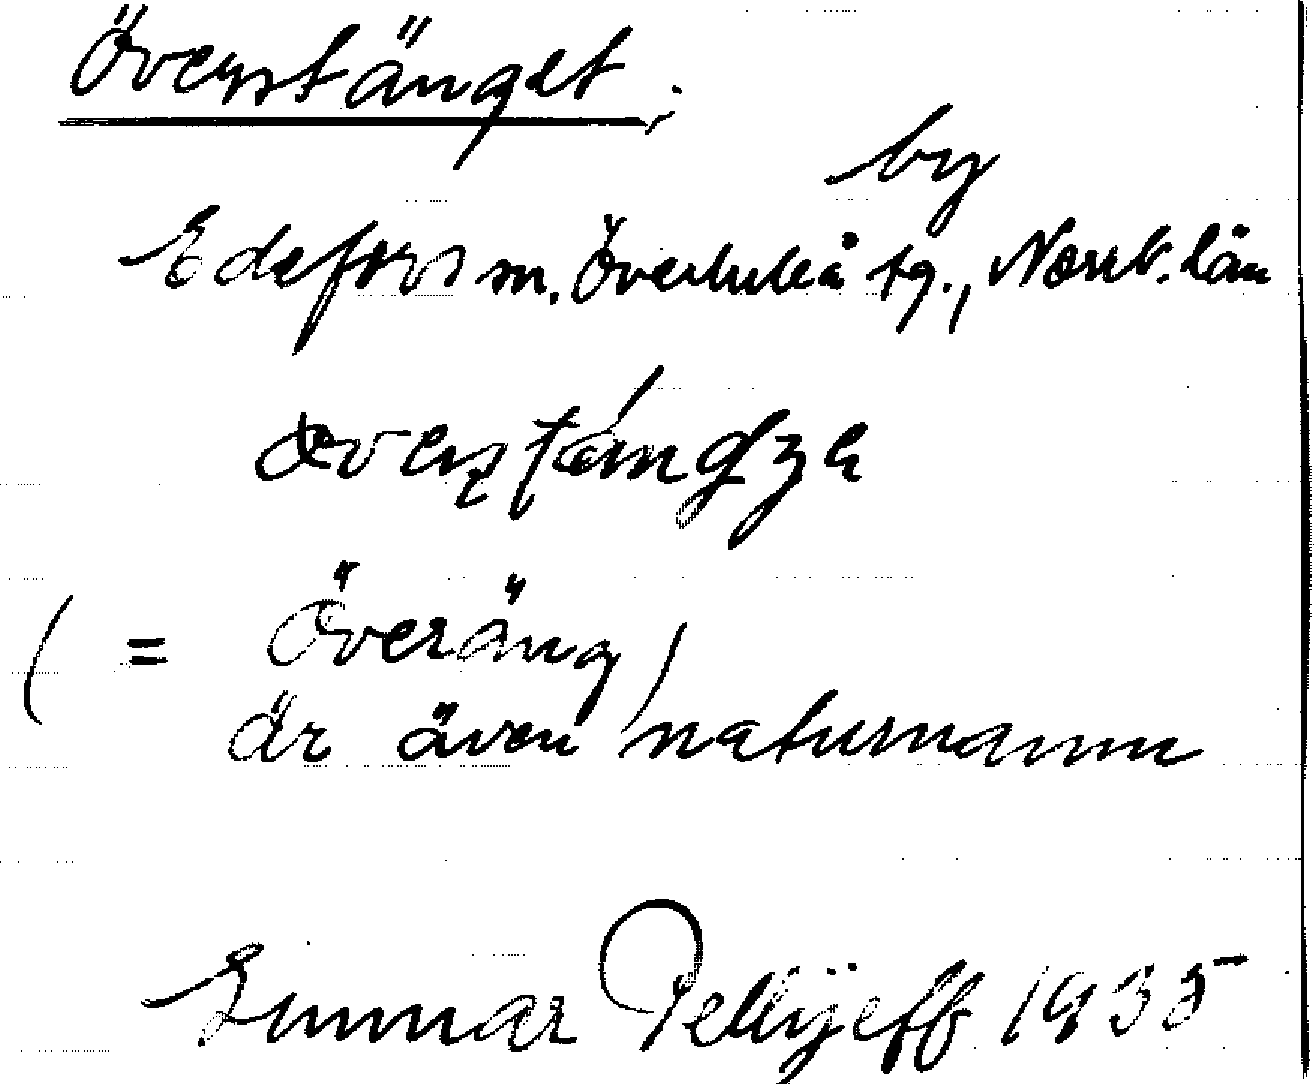 Överstänget.
by
Edefors sn. Överluleå tg., Norrb. län
(= Överäng)
är även naturnamn
Gunnar Pellijeff 1935